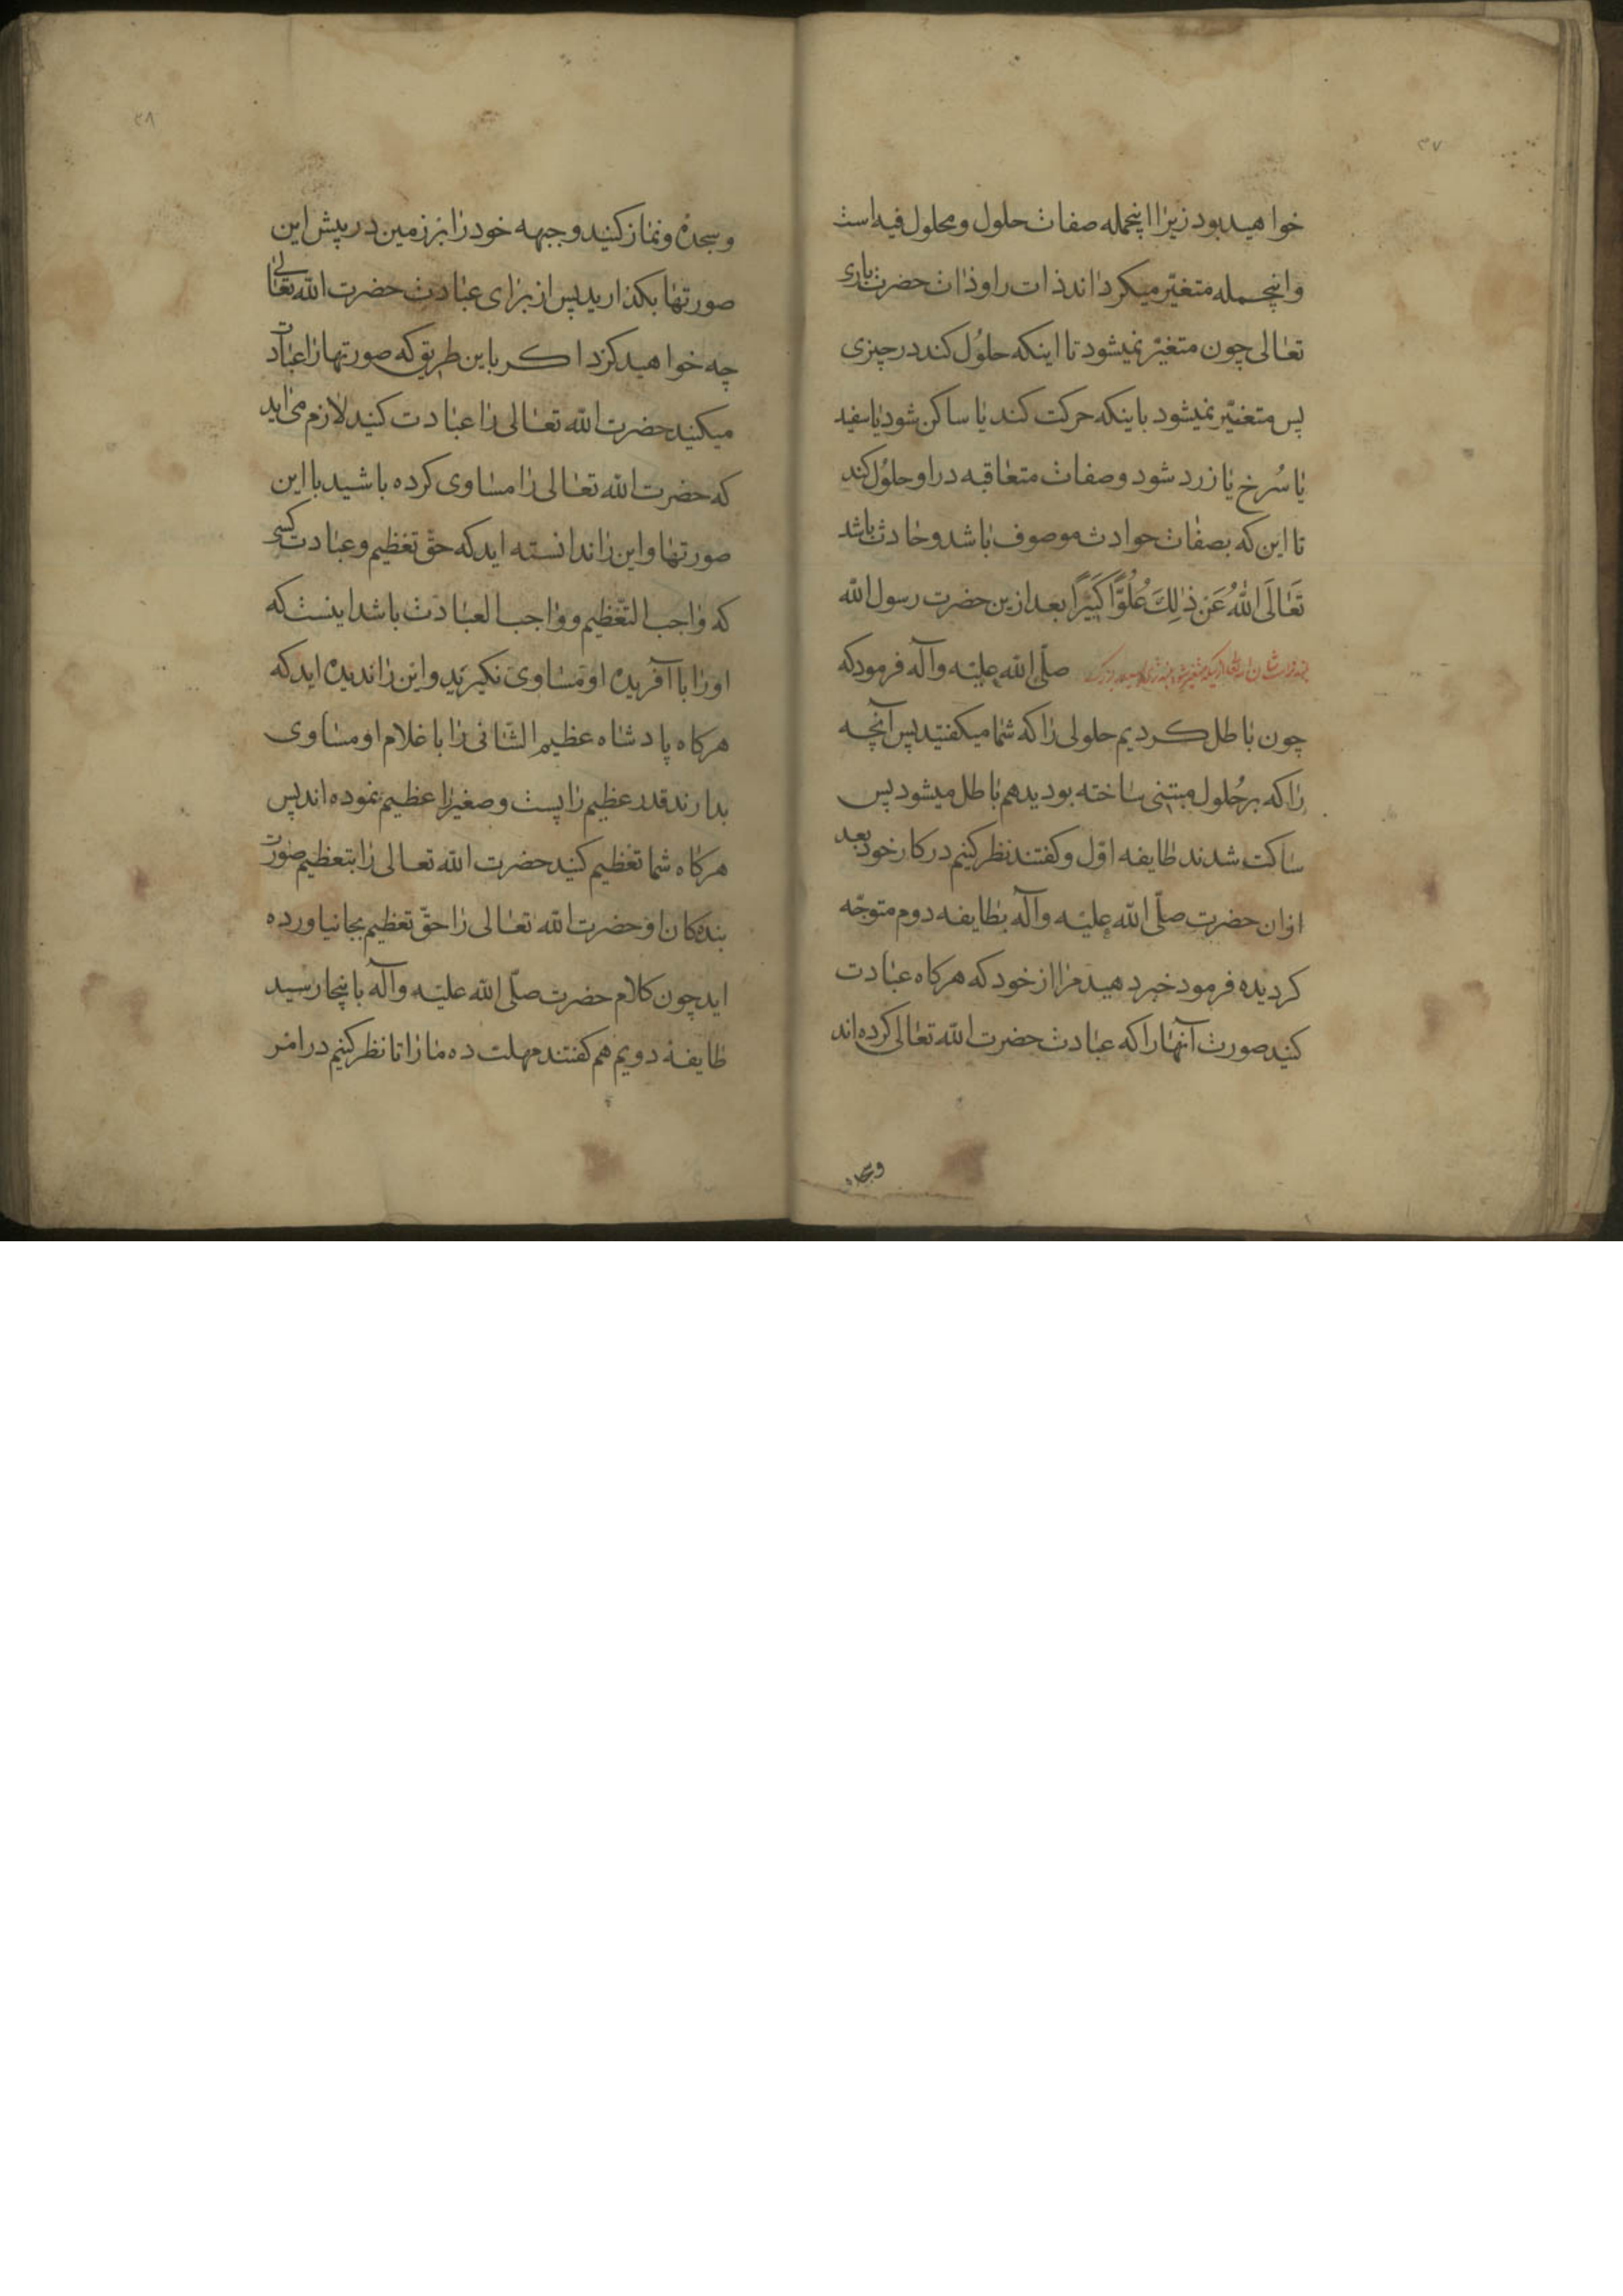 ۳۷
خواهید بود زیرا اینجمله صفات حلول و محلول فیه است
و اینجمله متغیّر میکرداند ذات را و ذات حضرت باری
تعالی چون متغیّر نمیشود تا اینکه حلُول کند در چیزی
پس متغیّر نمیشود باینکه حرکت کند یا ساکن شود یا سفید
یا سُرخ یا زرد شود و صفات متعاقبه در او حلُول کند
تا این که بصفات حوادث موصوف باشد و حادث باشد
تَعَالَی اللهُ عَنْ ذٰلِكَ عُلُوًّا كَبَيرًا بعد ازین حضرت رسول الله
صلّی الله علیه وآله فرمود که
چون باطل کردیم حلولی را که شما میکفتید پس آنچه
را که بر حُلول مبتنی ساخته بودید هم باطل میشود پس
ساکت شدند طایفه اوّل و کفتند نظر کنیم در کار خود بعد
ازان حضرت صلّی الله علیه وآله بطایفه دوم متوجّه
کردیده فرمود خبر دهید مرا از خود که هرکاه عبادت
کنید صورت آنها را که عبادت حضرت الله تعالی کرده‌اند
وسجده
۳۸
و سجده و نماز کنید و جبهه خود را بر زمین در پیش این
صورتها بکذارید پس از برای عبادت حضرت الله تعالی
چه خواهید کرد اکر باین طریق که صورتها را عبادت
میکنید حضرت الله تعالی را عبادت کنید لازم می‌اید
که حضرت الله تعالی را مساوی کرده باشید با این
صورتها و این را ندانسته اید که حق تعظیم و عبادت کسی
که واجب التّعظیم و واجب العبادت باشد اینست که
اورا با آفریده او مساوی نکیرید و این را ندیده اید که
هرکاه پادشاه عظیم الشّانی را با غلام او مساوی
بدارند قدر عظیم را پست و صغیر را عظیم نموده اند پس
هرکاه شما تعظیم کنید حضرت الله تعالی را بتعظیم صورت
بندکان او حضرت الله تعالی را حقّ تعظیم بجا نیاورده
اید چون کلام حضرت صلّی الله علیه وآله باینجا رسید
طایفهٔ دویم هم کفتند مهلت ده ما را تا نظر کنیم در امر